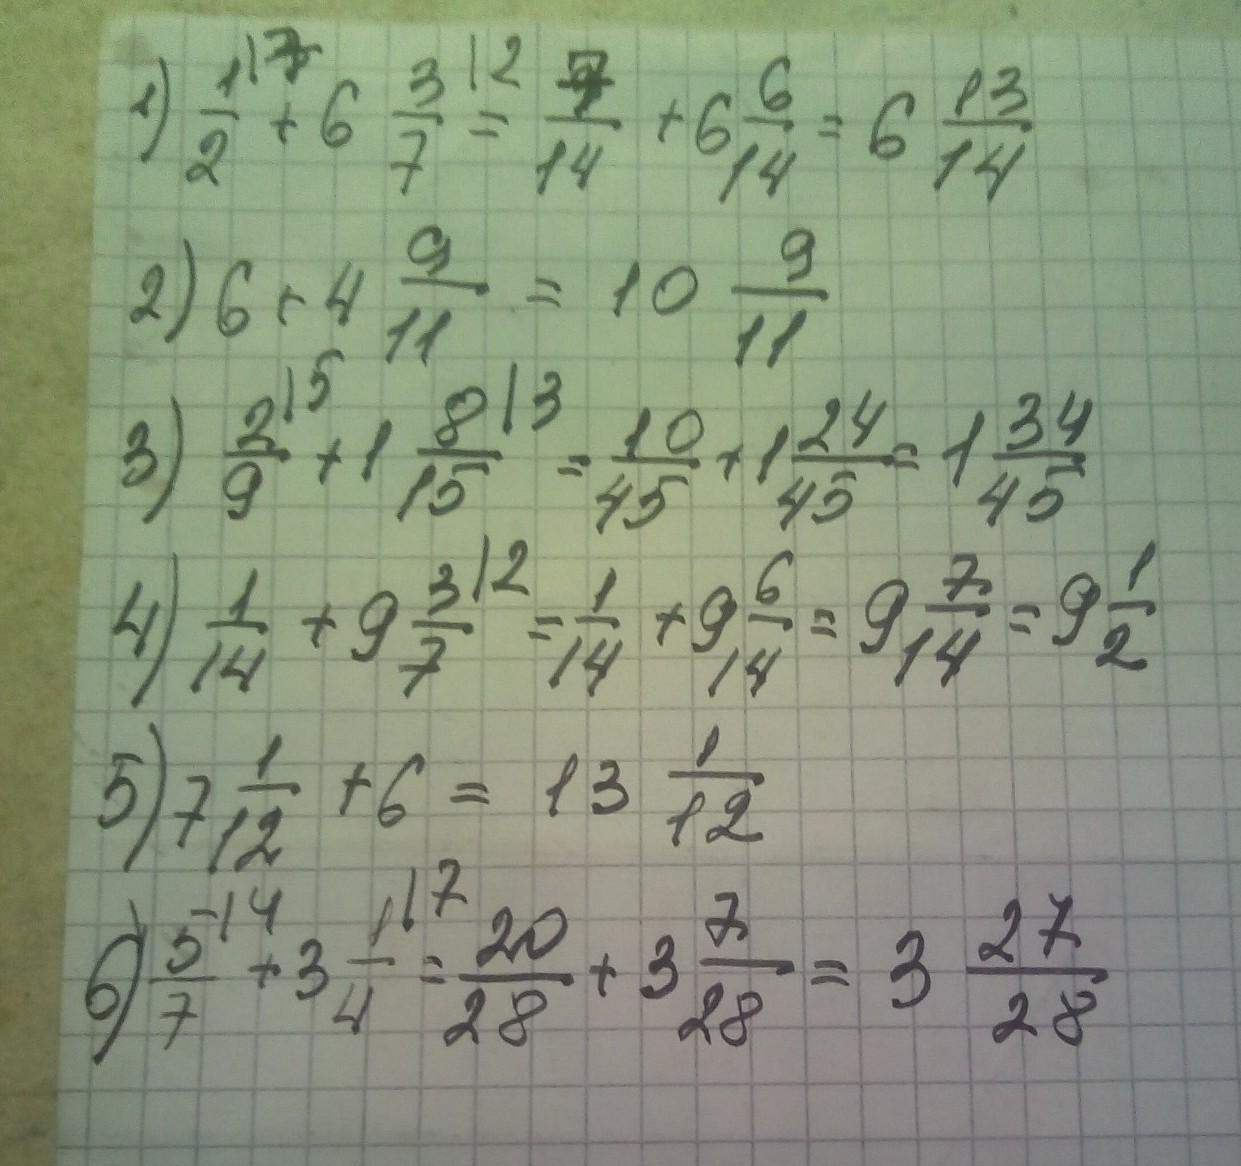 1) 1/2 |7 + 6 3/7 |2 = 7/14 + 6 6/14 = 6 13/14
2) 6 + 4 9/11 = 10 9/11
3) 2/9 |5 + 1 8/15 |3 = 10/45 + 1 24/45 = 1 34/45
4) 1/14 + 9 3/7 |2 = 1/14 + 9 6/14 = 9 7/14 = 9 1/2
5) 7 1/12 + 6 = 13 1/12
6) 5/7 |4 + 3 1/4 |7 = 20/28 + 3 7/28 = 3 27/28